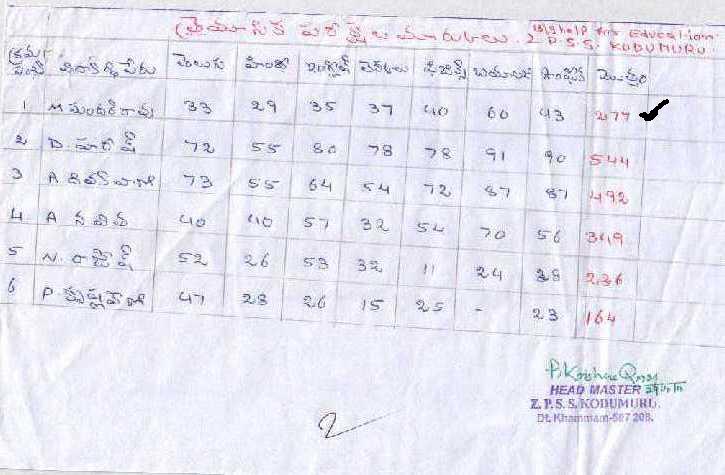 త్రైమాసిక పరీక్షల మార్కులు. help for Education
Z.P.S.S. KODUMURU.
క్రమ సంఖ్య విద్యార్థి పేరు తెలుగు హిందీ ఇంగ్లీష్ సాంఘిక మొత్తం
1 M 33 29 35 37 40 60 43 277 ✓
2 D. హరీష్ 72 55 80 78 78 91 90 544
3 A 73 55 64 54 72 87 87 492
4 A నవీన 40 40 57 32 54 70 56 349
5 N. రాజేష్ 52 26 53 32 11 24 38 236
6 P. 47 28 26 15 25 - 23 164
P. Krishna
HEAD MASTER
Z.P.S.S. KODUMURU.
Dt. Khammam-507 208.
2